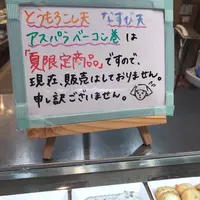 とうもろこし天 なすび天
アスパラベーコン巻は
「夏限定商品」ですので、
現在、販売はしておりません。
申し訳ございません。